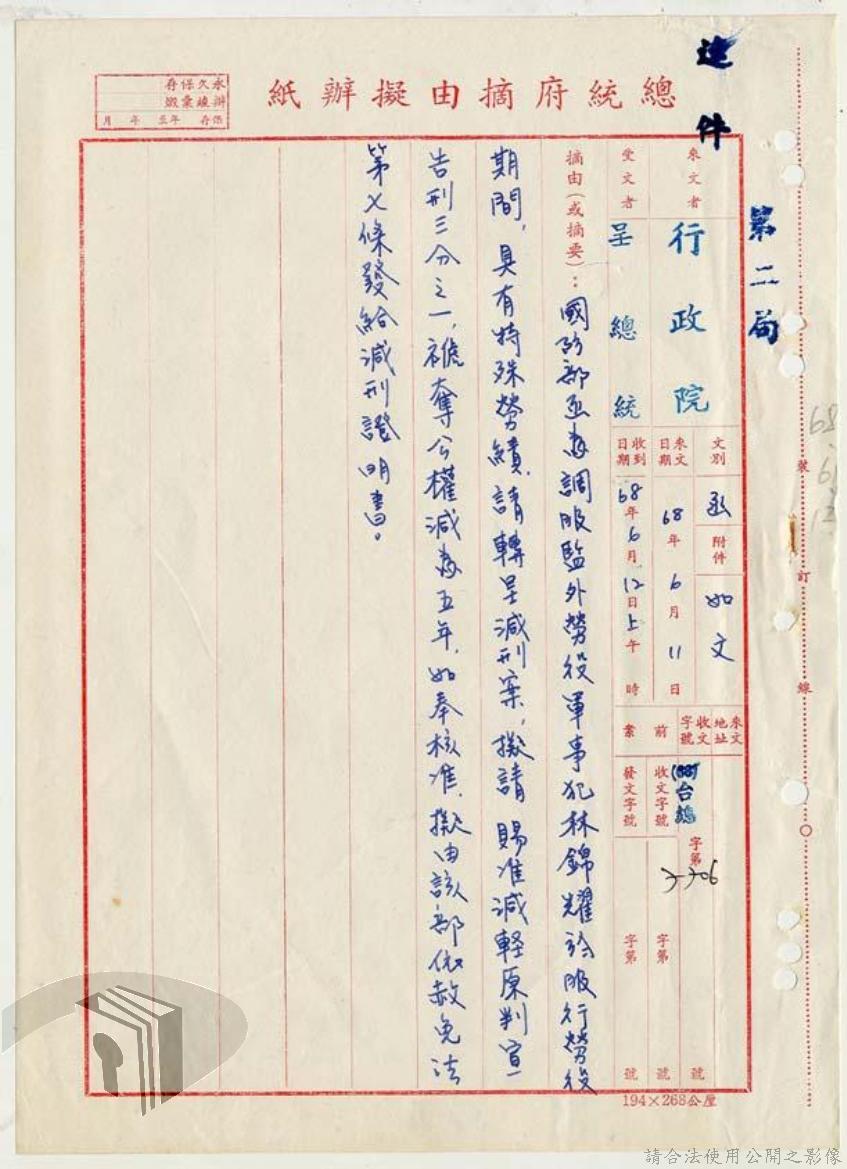 速件
第二局
總統府摘由擬辦紙
永久保存
辦竣彙燬
保存 年至 年 月
來文者 行政院
受文者 呈總統
文別 函 附件 如文
來文日期 68年6月11日
收到日期 68年6月12日上午 時
來文地址
收文字號 (68)台總字第 號
前案 收文字號 字第 號
發文字號 字第 號
摘由(或摘要):國防部函為調服監外勞役軍事犯林錦耀於服行勞役
期間,具有特殊勞績,請轉呈減刑案,擬請 賜准減輕原判宣
告刑三分之一,褫奪公權減為五年,如奉核准,擬由該部依赦免法
第七條發給減刑證明書。
裝訂線
68.6.12
194×268公厘
請合法使用公開之影像